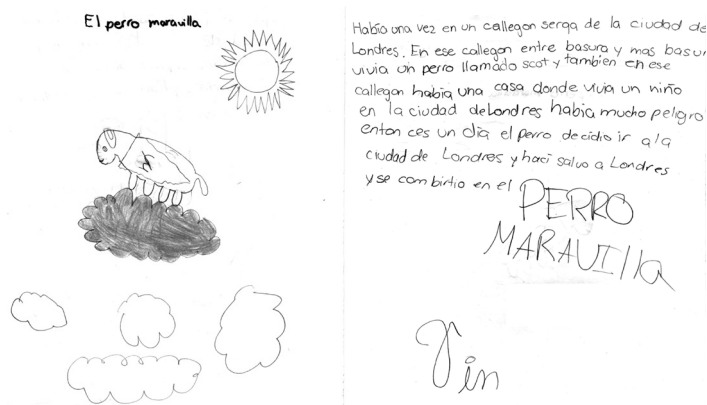 El perro maravilla
Había una vez en un callegon serqa de la ciudad de
Londres. En ese callegon entre basura y mas basur
vivia un perro llamado scot y tambien en ese
callegon había una casa donde vivia un niño
en la ciudad de Londres habia mucho peligro
enton ces un día el perro decidio ir a la
ciudad de Londres y haci salvo a Londres
y se combirtio en el PERRO
MARAVIlla
Fin